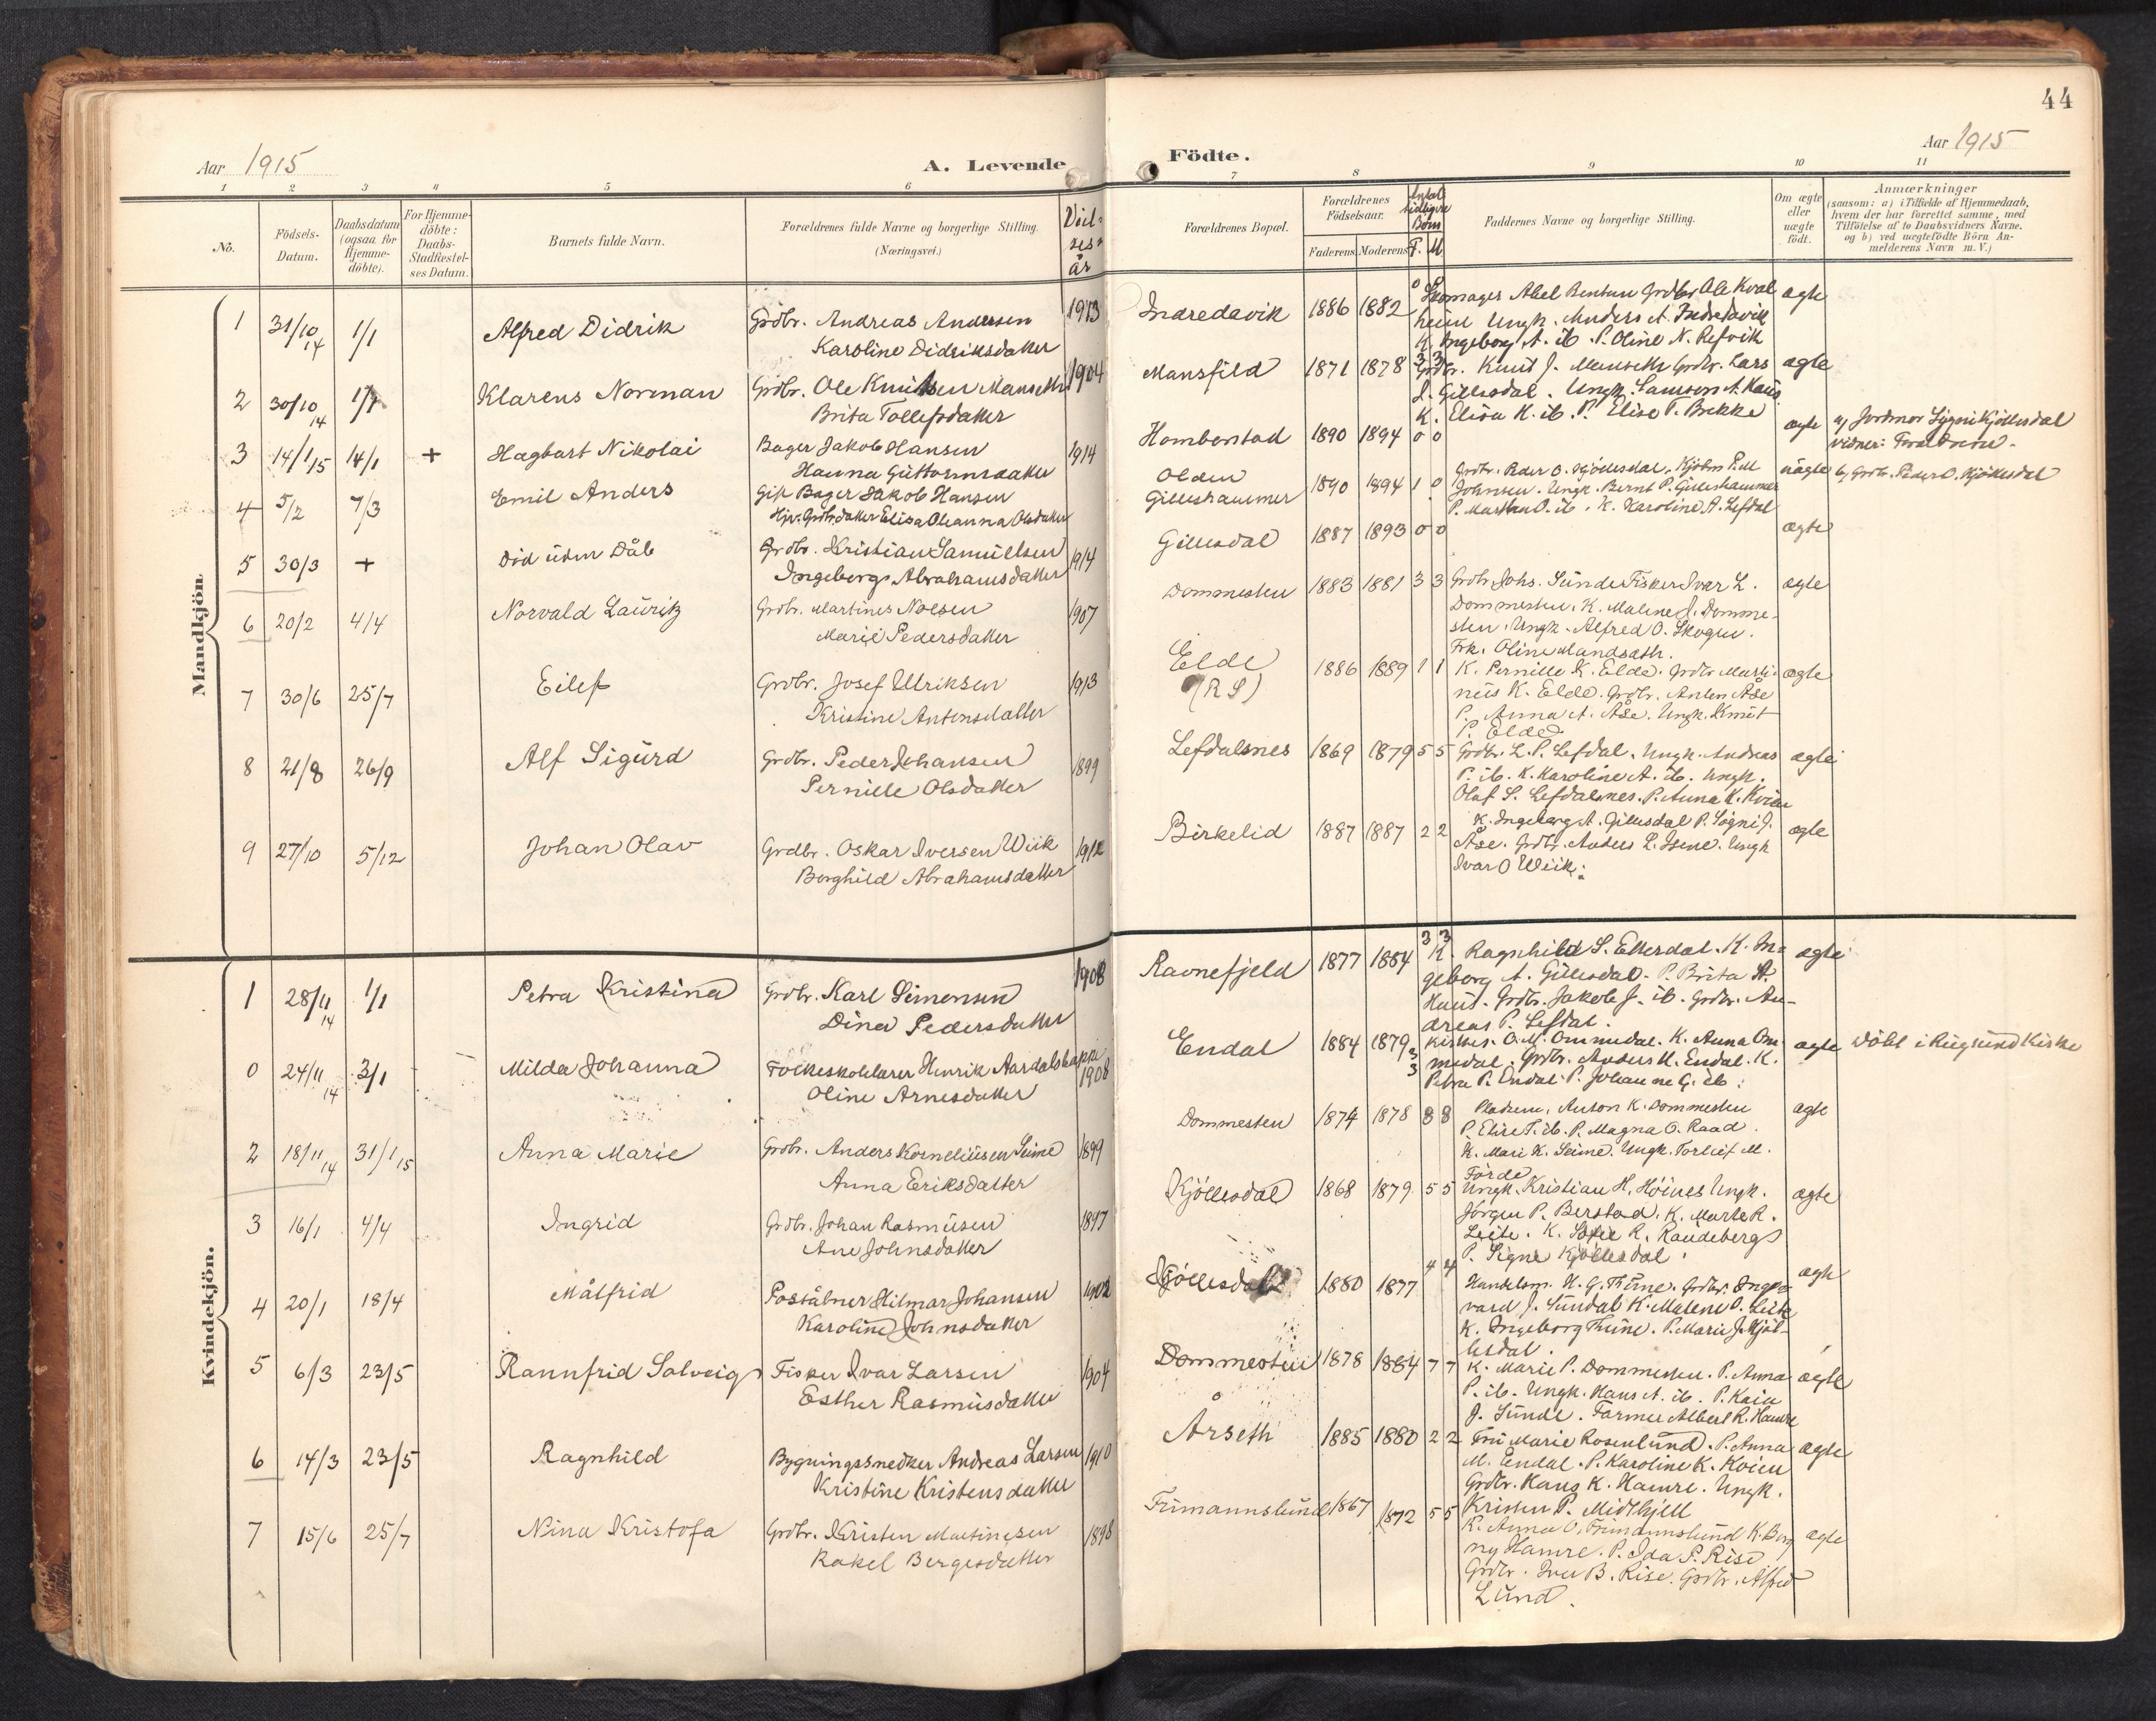 44
Aar 1915
A. Levende
Födte.
Aar 1915
1 2 3 4 5 6 7 8 9 10 11
No.
Födsels-Datum.
Daabsdatum (ogsaa for Hjemme-döbte).
For Hjemme-döbte: Daabs-Stadfæstel-ses Datum.
Barnets fulde Navn.
Forældrenes fulde Navne og borgerlige Stilling.
(Næringsvei.)
Viel-ses-år
Forældrenes Bopæl.
Forældrenes Födselsaar.
Faderens Moderens
Antal tidligere Börn
F. M
Faddernes Navne og borgerlige Stilling.
Om ægte eller uægte födt.
Anmærkninger
(saasom: a) i Tilfælde af Hjemmedaab, hvem der har forrettet samme, med Tilföielse af to Daabsvidners Navne. og b) ved uægtefödte Börn An-melderens Navn m. V.)
Mandkjön
1 31/10 14 1/1 Alfred Didrik Grdbr. Andreas Andersen 1913 Indredavik 1886 1882 0 0 Skomager Abel Bentsen Grdbr Ole Kval ægte
Karoline Didriksdatter
heim Ungk. Anders A. Indredavik
K. Ingeborg A. ib. P. Oline N. Refvik
2 30/10 14 1/1 Klarens Norman Grdbr. Ole Knutsen Manseth 1904 Mansfild 1871 1878 3 3 Grdbr. Knut J. Manseth Grdbr. Lars ægte
Brita Tollefsdatter
J. Gillesdal. Ungk. Samson A. Haus
K. Elisa H. ib. P. Elise T. Brekke
3 14/1 15 14/1 + Hagbart Nikolai Bager Jakob Hansen 1914 Homborstad 1890 1894 0 0 ægte a) Jordmor Signi Kjöllesdal
Hanna Guttormsdatter
vidner: Foreldrene.
4 5/2 7/3 Emil Anders Gift Bager Jakob Hansen Olden 1890 1894 1 0 Grdbr. Peder O. Kjöllesdal. Kjöbm P. M uægte b) Grdbr. Peder O. Kjöllesdal
Hjv. Grdbrdatter Elisa Oleanna Olsdatter
Gilleshammer
Johnsen. Ungk. Bernt P. Gilleshammer
P. Martha O. ib. K. Karoline A. Lefdal
5 30/3 + Död uden Dåb Grdbr. Kristian Samuelsen 1914 Gillesdal 1887 1893 0 0 ægte
Ingeborg Abrahamsdatter
6 20/2 4/4 Norvald Lauritz Grdbr. Martinus Nolsen 1907 Dommesten 1883 1881 3 3 Grdbr Johs. Sunde Fisker Ivar L. ægte
Marie Pedersdatter
Dommesten. K. Malene J. Domme-
sten. Ungk. Alfred O. Skogen.
Frk. Oline Mandsæth.
7 30/6 25/7 Eilef Grdbr. Josef Ulriksen 1913 Elde 1886 1889 1 1 K. Pernille K. Elde. Grdbr Marti- ægte
Kristine Antonsdatter
(R S)
nus K. Elde. Grdbr. Anton Åse
P. Anna A. Åse. Ungk. Knut
P. Elde
8 21/8 26/9 Alf Sigurd Grdbr. Peder Johansen 1899 Lefdalsnes 1869 1879 5 5 Grdbr. L. P. Lefdal. Ungk. Andreas ægte
Pernille Olsdatter
P. ib. K. Karoline A. ib. Ungk.
Olaf S. Lefdalsnes. P. Anna K. Kvien
9 27/10 5/12 Johan Olav Grdbr. Oskar Iversen Wiik 1912 Birkelid 1887 1887 2 2 K. Ingeborg A. Gillesdal P. Signi J. ægte
Borghild Abrahamsdatter
Åse. Grdbr. Anders L. Isene. Ungk
Ivar O Wiik.
Kvindekjön.
1 28/11 14 1/1 Petra Kristina Grdbr. Karl Simonsen 1908 Ravnefjeld 1877 1884 3 3 K. Ragnhild S. Ellerdal. K. In- ægte
Dina Pedersdatter
geborg A. Gillesdal. P. Brita A.
Haus. Grdbr. Jakob J. ib. Grdbr. An-
dreas P. Lefdal.
0 24/11 14 3/1 Milda Johanna Folkeskolelærer Henrik Aardalsbakke 1908 Endal 1884 1879 3 3 O. M. Ommedal. K. Anna Om- ægte Döbt i Rugsund Kirke
Oline Arnesdatter
medal. Grdbr. Anders M. Endal. K.
Petra P. Endal. P. Johanne G. ib.
2 18/11 14 31/1 15 Anna Marie Grdbr. Anders Korneliusen Seime 1899 Dommesten 1874 1878 8 8 Pladsm. Anton K. Dommesten ægte
Anna Eriksdatter
P. Elise T. ib. P. Magna O. Raad.
K. Mari K. Seime. Ungk. Torleif M.
Förde
3 16/1 4/4 Ingrid Grdbr. Johan Rasmusen 1897 Kjöllesdal 1868 1879 5 5 Ungk. Kristian H. Höines Ungk. ægte
Ane Johnsdatter
Jörgen P. Berstad. K. Marte R.
Leite. K. Sofie R. Raudeberg
P. Signe Kjöllesdal.
4 20/1 18/4 Målfrid Poståbner Hilmar Johansen 1902 Kjöllesdal 1880 1877 4 4 Handelsm. H. G. Thune. Grdbr. Ingv- ægte
Karoline Johnsdatter
vard J. Sundal K. Malene O. Leite
K. Ingeborg Thune. P. Marie J. Kjöl-
lesdal.
5 6/3 23/5 Rannfrid Solveig Fisker Ivar Larsen 1904 Dommesten 1878 1884 7 7 K. Marie P. Dommesten. P. Anna ægte
Esther Rasmusdatter
P. ib. Ungk. Hans A. ib. P. Kaia
J. Sunde. Farmer Albert R. Hamre
6 14/3 23/5 Ragnhild Bygningssnedker Andreas Larsen 1910 Årseth 1885 1880 2 2 Fru Marie Rosenlund. P. Anna ægte
Kristine Kristensdatter
M. Endal. P. Karoline K. Kvien
Grdbr. Hans K. Hamre. Ungk.
Kristen P. Midthjell
7 15/6 25/7 Nina Kristofa Grdbr. Kristen Martinesen 1898 Frimannslund 1867 1872 5 5 K. Anna O. Frimannslund K. Borg ægte
Rakel Bergesdatter
ny Hamre. P. Ida P. Rise
Grdbr. Iver B. Rise. Grdbr. Alfred
Lund.